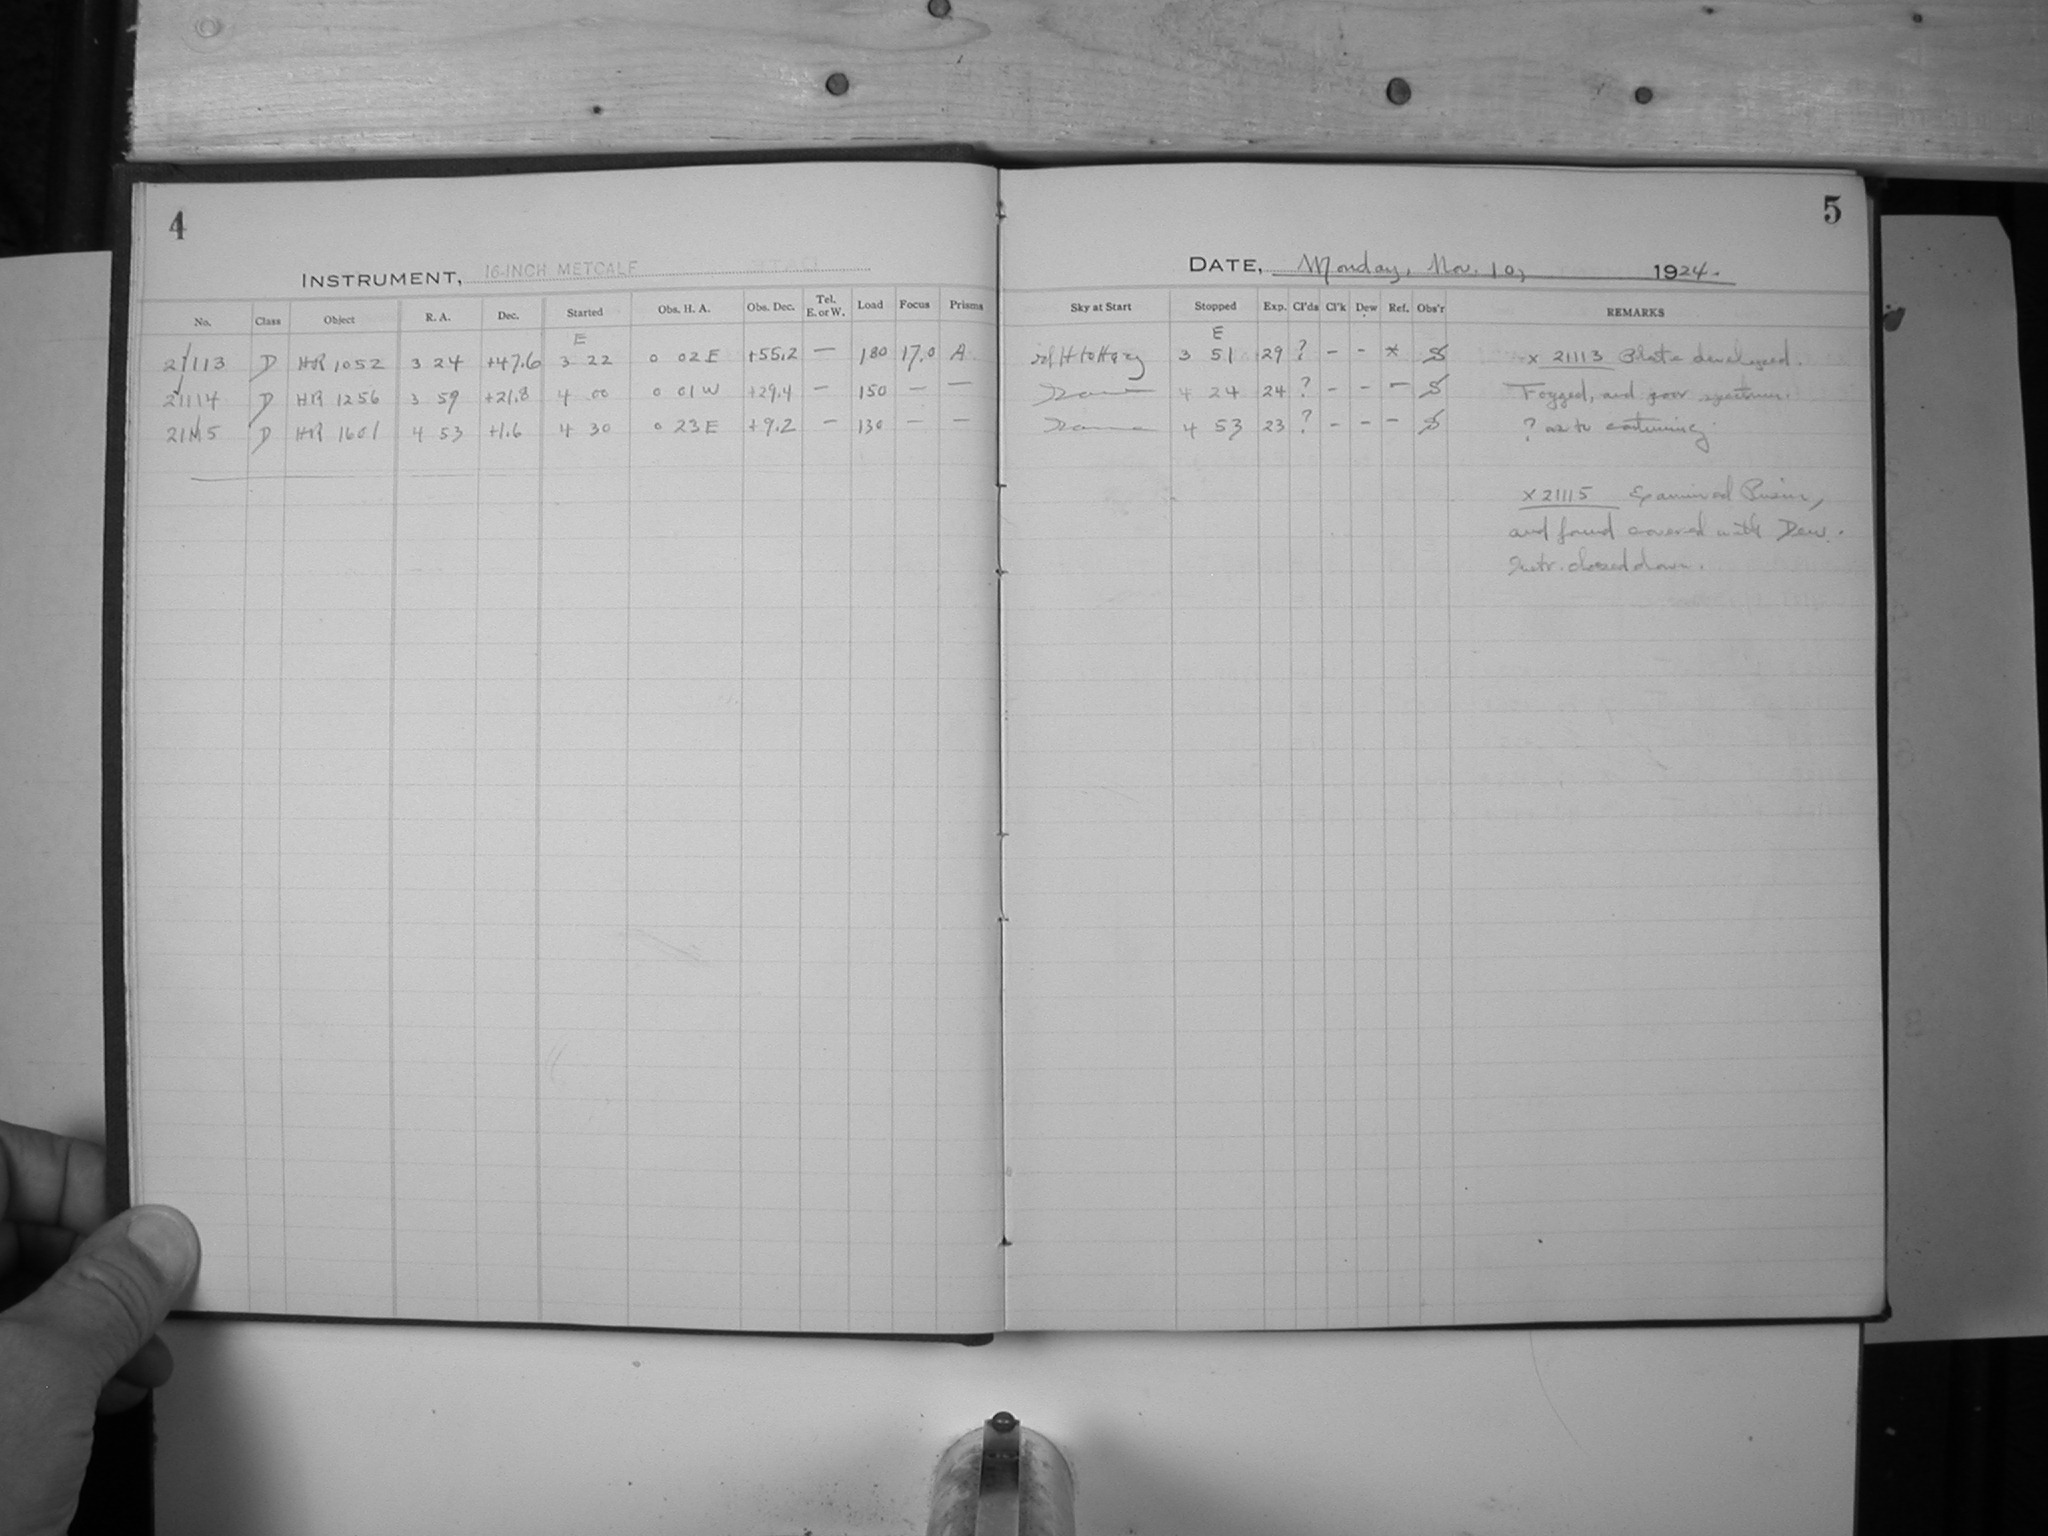 4
INSTRUMENT, 16-INCH METCALF
No. Class Object R. A. Dec. Started Obs. H. A. Obs. Dec. Tel. E. or W. Load Focus Prisms
E
21113 D HR 1052 3 24 +47.6 3 22 0 02 E +55.2 — 180 17.0 A
21114 D HR 1256 3 59 +21.8 4 00 0 01 W +29.4 — 150 — —
21115 D HR 1601 4 53 +1.6 4 30 0 23 E +9.2 — 130 — —
5
DATE, Monday, Nov. 10, 1924.
Sky at Start Stopped Exp. Cl'ds Cl'k Dew Ref. Obs'r REMARKS
E
3 51 29 ? - - x x 21113 Plate developed.
4 24 24 ? - - - Fogged, and poor spectrum.
4 53 23 ? - - - ? as to continuing.
x 21115 Examined Prism,
and found covered with Dew.
Instr. closed down.